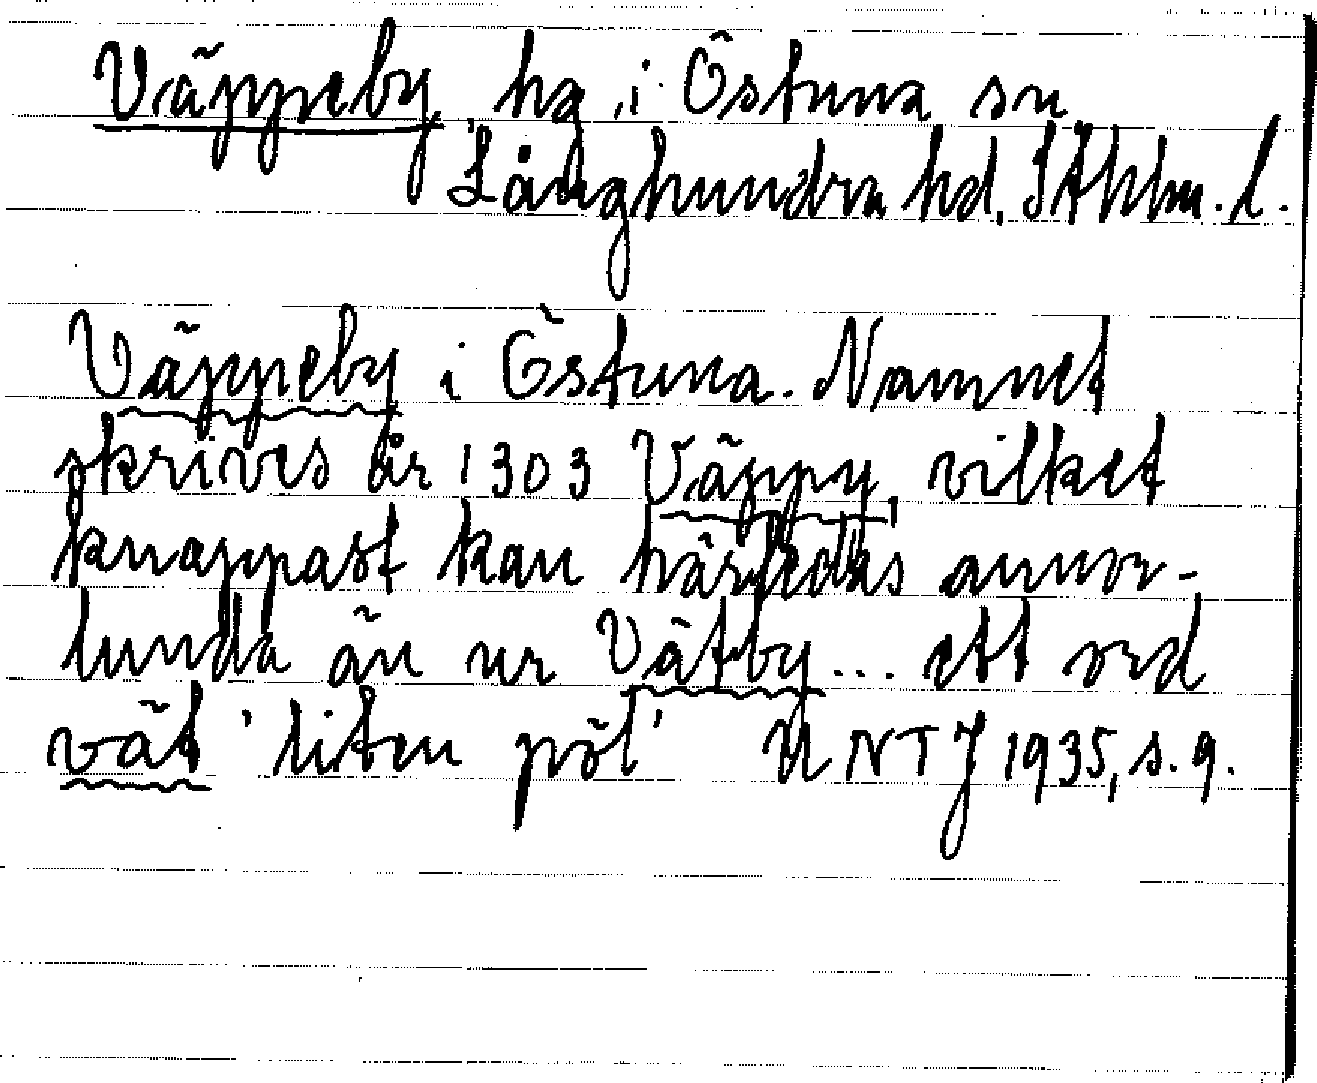 Väppeby, hg, i Östuna sn
Långhundra hd, Sthlm. l.
Väppeby i Östuna. Namnet
skrives år 1303 Väppy, vilket
knappast kan härledas annor-
lunda än ur Vätby... ett ord
vät 'liten pöl' UNTJ 1935, s. 9.